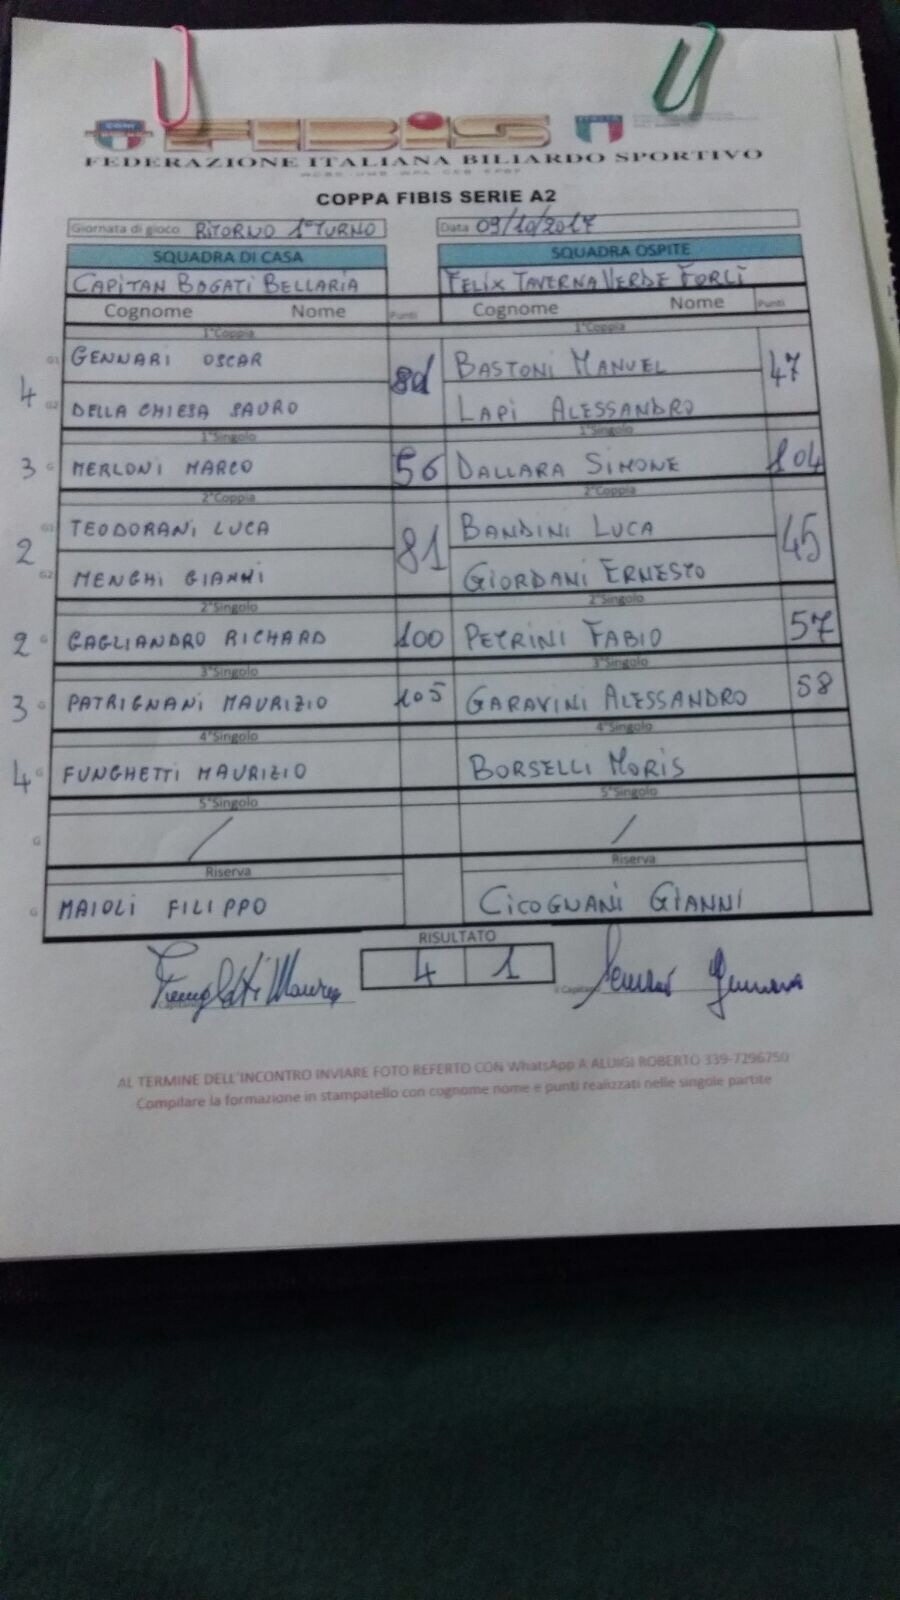 FIBIS
FEDERAZIONE ITALIANA BILIARDO SPORTIVO
COPPA FIBIS SERIE A2
Giornata di gioco RITORNO 1° TURNO Data 09/10/2017
SQUADRA DI CASA SQUADRA OSPITE
CAPITAN BOGATI BELLARIA FELIX TAVERNA VERDE FORLÌ
Cognome Nome Punti Cognome Nome Punti
1°Coppia 1°Coppia
G1 GENNARI OSCAR BASTONI MANUEL 47
4 G2 DELLA CHIESA SAURO LAPI ALESSANDRO
1°Singolo 1°Singolo
3 G MERLONI MARCO 56 DALLARA SIMONE 104
2°Coppia 2°Coppia
G1 TEODORANI LUCA 81 BANDINI LUCA 45
2 G2 MENGHI GIANNI GIORDANI ERNESTO
2°Singolo 2°Singolo
2 G GAGLIANDRO RICHARD 100 PETRINI FABIO 57
3°Singolo 3°Singolo
3 G PATRIGNANI MAURIZIO 105 GARAVINI ALESSANDRO 58
4°Singolo 4°Singolo
4 G FUNGHETTI MAURIZIO BORSELLI MORIS
5°Singolo 5°Singolo
G / /
Riserva Riserva
G MAIOLI FILIPPO CICOGNANI GIANNI
RISULTATO
4 1
AL TERMINE DELL'INCONTRO INVIARE FOTO REFERTO CON WhatsApp A ALUIGI ROBERTO 339-7296750
Compilare la formazione in stampatello con cognome nome e punti realizzati nelle singole partite